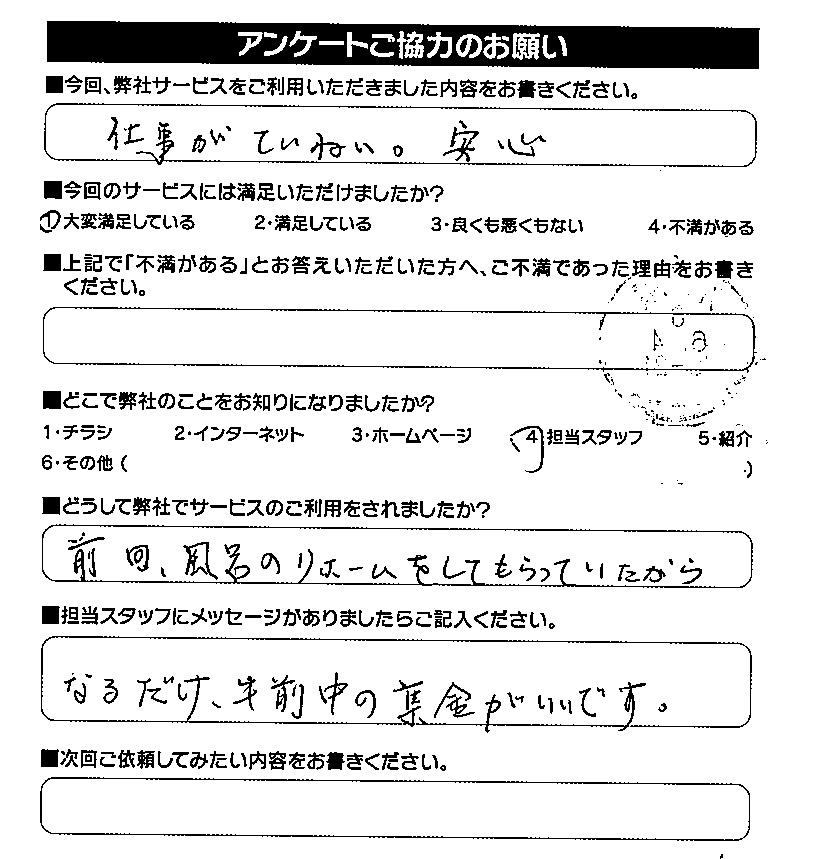 アンケートご協力のお願い
■今回、弊社サービスをご利用いただきました内容をお書きください。
仕事がていねい。安心
■今回のサービスには満足いただけましたか?
1大変満足している 2・満足している 3・良くも悪くもない 4・不満がある
■上記で「不満がある」とお答えいただいた方へ、ご不満であった理由をお書き
ください。
■どこで弊社のことをお知りになりましたか?
1・チラシ 2・インターネット 3・ホームページ 4担当スタッフ 5・紹介
6・その他 ( )
■どうして弊社でサービスのご利用をされましたか?
前回、風呂のリホームをしてもらっていたから
■担当スタッフにメッセージがありましたらご記入ください。
なるだけ、午前中の集金がいいです。
■次回ご依頼してみたい内容をお書きください。